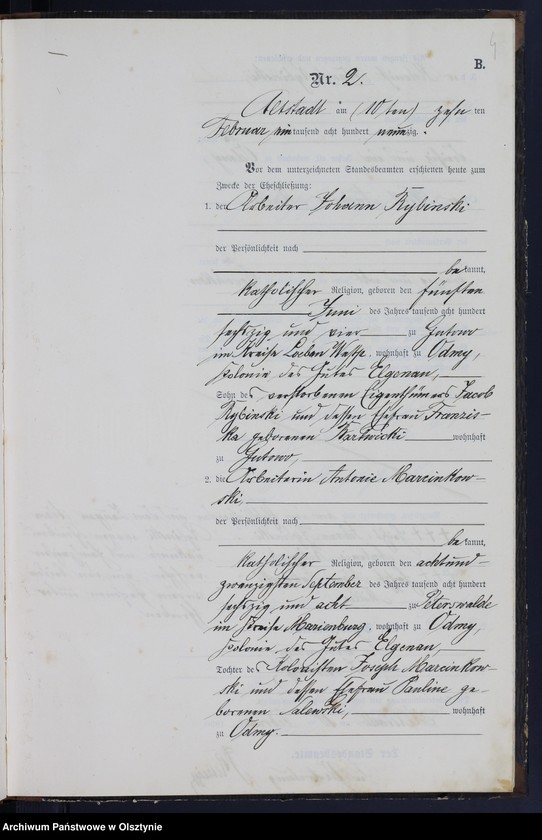 4
B.
Nr. 2.
Altstadt am (10ten) zehn ten
Februar, eintausend acht hundert neunzig.
Vor dem unterzeichneten Standesbeamten erschienen heute zum
Zwecke der Eheschließung:
1. der Arbeiter Johann Rybinski
der Persönlichkeit nach
bekannt,
katholischer Religion, geboren den fünften
Juni des Jahres tausend acht hundert
sechszig und vier zu Gutowo
im Kreise Loebau Westpr., wohnhaft zu Odmy,
Kolonie des Gutes Elgenau,
Sohn des verstorbenen Eigenthümers Jacob
Rybinski und dessen Ehefrau Franzis-
ka geborenen Bartwicki wohnhaft
zu Gutowo,
2. die Arbeiterin Antonie Marcinkow-
ski,
der Persönlichkeit nach
bekannt,
katholischer Religion, geboren den achtund-
zwanzigsten September des Jahres tausend acht hundert
sechszig und acht zu Peterswalde
im Kreise Marienburg, wohnhaft zu Odmy,
Kolonie des Gutes Elgenau,
Tochter des Kolonisten Joseph Marcinkow-
ski und dessen Ehefrau Pauline ge-
borenen Salewski, wohnhaft
zu Odmy.
Archiwum Państwowe w Olsztynie